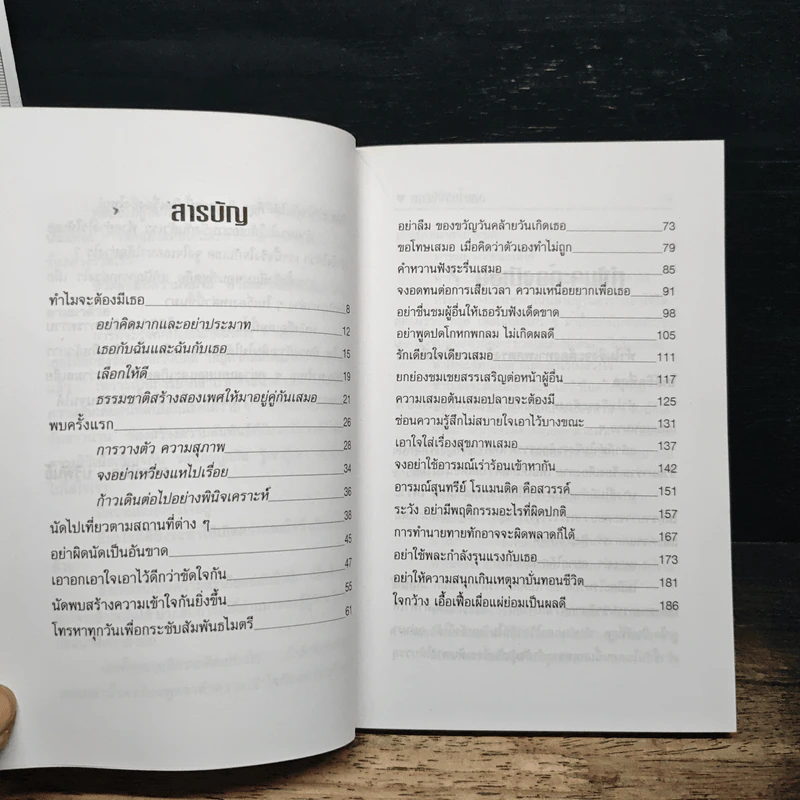 สารบัญ
ทำไมจะต้องมีเธอ 8
อย่าคิดมากและอย่าประมาท 12
เธอกับฉันและฉันกับเธอ 15
เลือกให้ดี 19
ธรรมชาติสร้างสองเพศให้มาอยู่คู่กันเสมอ 21
พบครั้งแรก 26
การวางตัว ความสุภาพ 28
จงอย่าเหวี่ยงแหไปเรื่อย 34
ก้าวเดินต่อไปอย่างพินิจเคราะห์ 36
นัดไปเที่ยวตามสถานที่ต่าง ๆ 38
อย่าผิดนัดเป็นอันขาด 45
เอาอกเอาใจเอาไว้ดีกว่าขัดใจกัน 47
นัดพบสร้างความเข้าใจกันยิ่งขึ้น 55
โทรหาทุกวันเพื่อกระชับสัมพันธไมตรี 61
อย่าลืม ของขวัญวันคล้ายวันเกิดเธอ 73
ขอโทษเสมอ เมื่อคิดว่าตัวเองทำไม่ถูก 79
คำหวานฟังระรื่นเสมอ 85
จงอดทนต่อการเสียเวลา ความเหนื่อยยากเพื่อเธอ 91
อย่าชื่นชมผู้อื่นให้เธอรับฟังเด็ดขาด 98
อย่าพูดปดโกหกพกลม ไม่เกิดผลดี 105
รักเดียวใจเดียวเสมอ 111
ยกย่องชมเชยสรรเสริญต่อหน้าผู้อื่น 117
ความเสมอต้นเสมอปลายจะต้องมี 125
ซ่อนความรู้สึกไม่สบายใจเอาไว้บางขณะ 131
เอาใจใส่เรื่องสุขภาพเสมอ 137
จงอย่าใช้อารมณ์เร่าร้อนเข้าหากัน 142
อารมณ์สุนทรีย์ โรแมนติค คือสวรรค์ 151
ระวัง อย่ามีพฤติกรรมอะไรที่ผิดปกติ 157
การทำนายทายทักอาจจะผิดพลาดก็ได้ 167
อย่าใช้พละกำลังรุนแรงกับเธอ 173
อย่าให้ความสนุกเกินเหตุมาบั่นทอนชีวิต 181
ใจกว้าง เอื้อเฟื้อเผื่อแผ่ย่อมเป็นผลดี 186